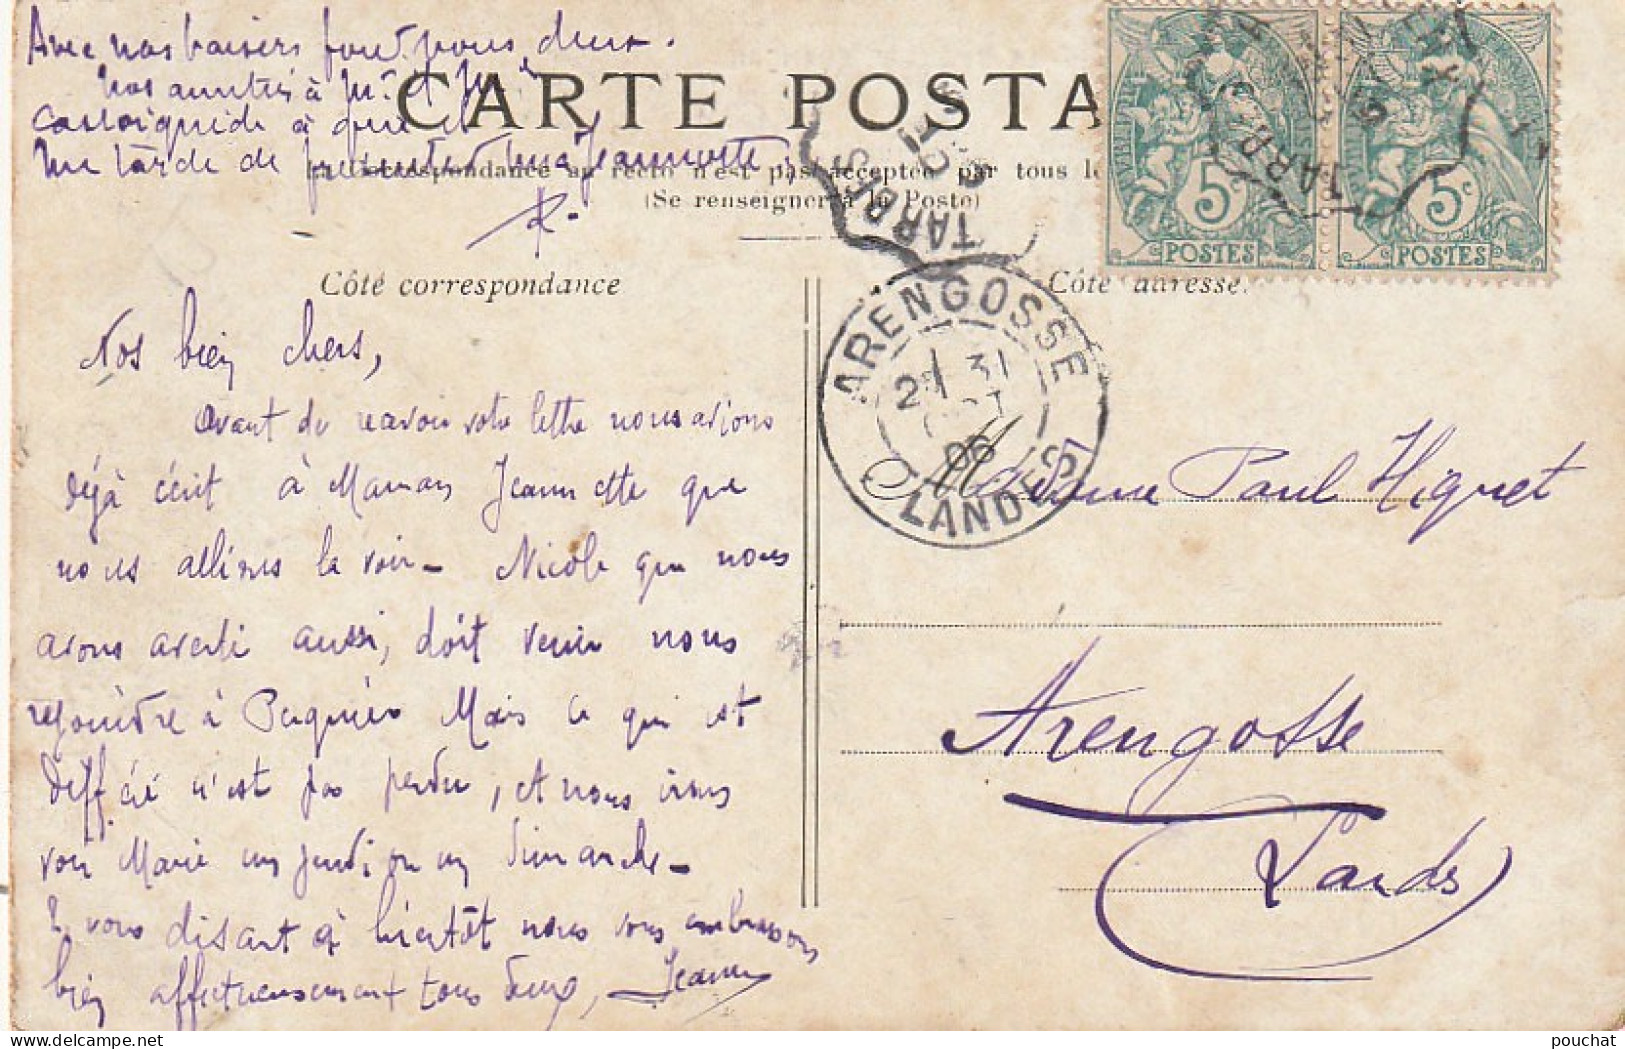 Avec nos baisers pour vous deux.
Nos amitiés à Mr. et Me
à qui il
me tarde de présenter ma Jeannette
R.
CARTE POSTA
La Correspondance au recto n'est pas acceptée par tous le
(Se renseigner à la Poste)
5c POSTES
5c POSTES
TARBES
TARD
TARB
Côté correspondance
Côté adresse.
ARENGOSSE
31
OCT
06
LANDES
Nos bien chers,
Avant de recevoir votre lettre nous avions
déjà écrit à Maman Jeannette que
nous allions la voir - Nicole que nous
avons averti aussi, doit venir nous
rejoindre à Mais ce qui est
différé n'est pas perdu, et nous irons
voir Marie un jeudi ou un dimanche -
vous disant à bientôt nous vous embrassons
bien affectueusement tous deux, Jeanne
Madame Paul Higuet
Arengosse
Landes
pouchat